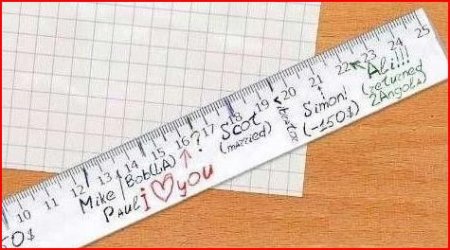 10 11 12 13 14 15 16 17 18 19 20 21 22 23 24 25
50$
Mike / Bob(LA)
Paul
i ♡ you
?
Scot
(married)
Simon!
(-150$)
Ali!!!
(returned
2Angola)